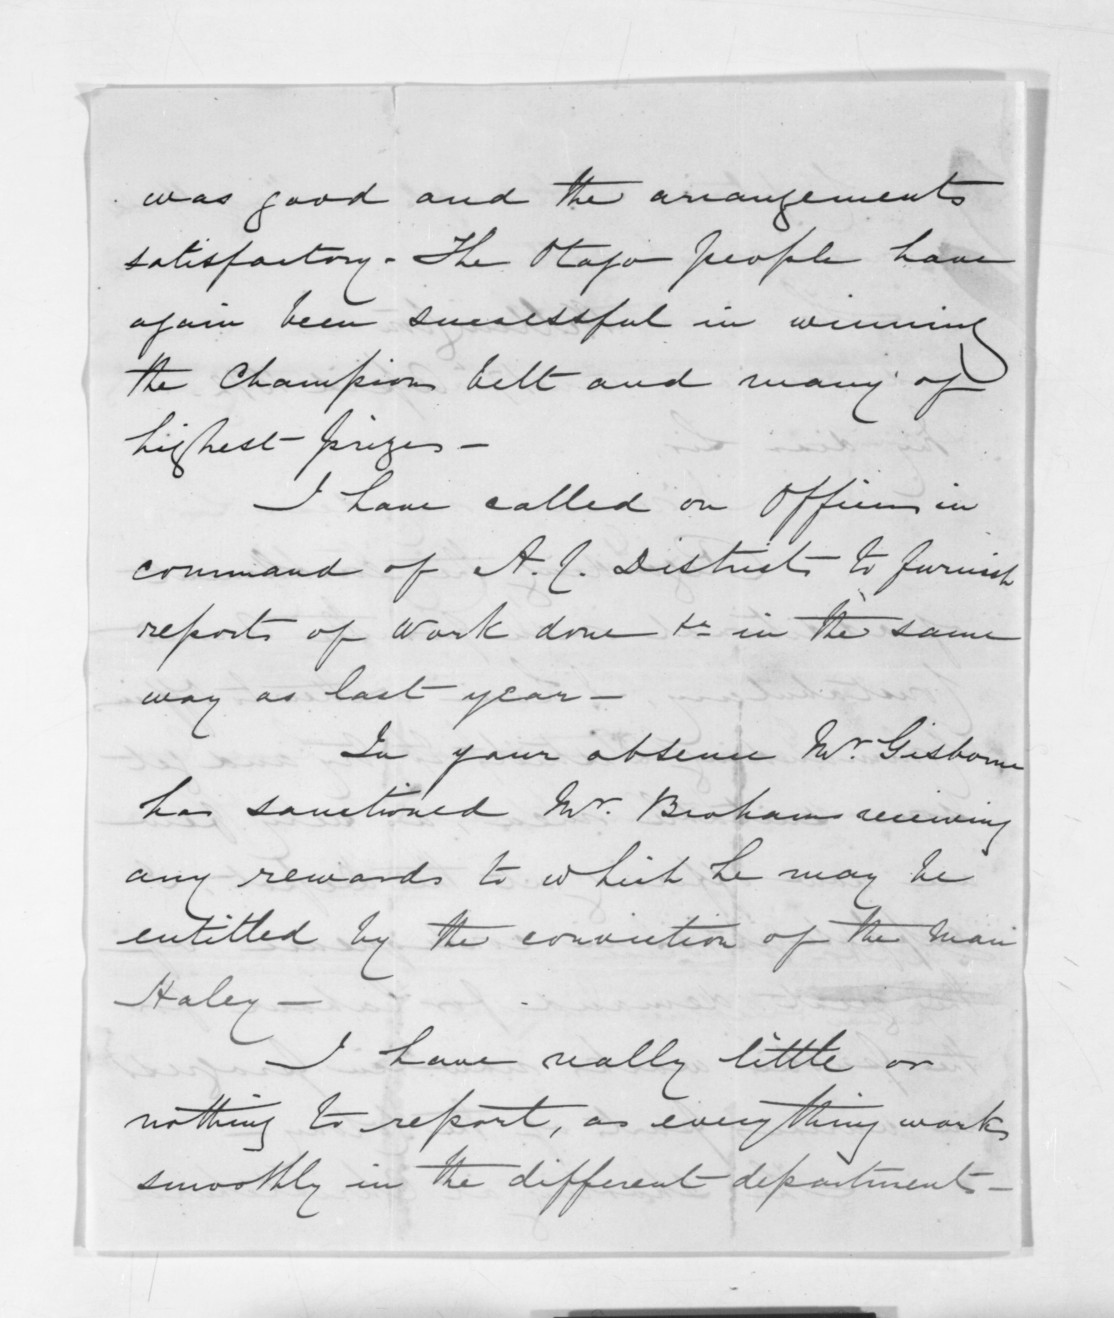 was good and the arrangements
satisfactory - The Otago people have
again been successful in winning
the Champion belt and many of
highest prizes -
I have called on Officers in
command of A. C. Districts to furnish
reports of work done &c in the same
way as last year -
In your absence Mr. Gisborne
has sanctioned Mr. Brohams receiving
any rewards to which he may be
entitled by the conviction of the man
Haley -
I have really little or
nothing to report, as everything works
smoothly in the different departments -